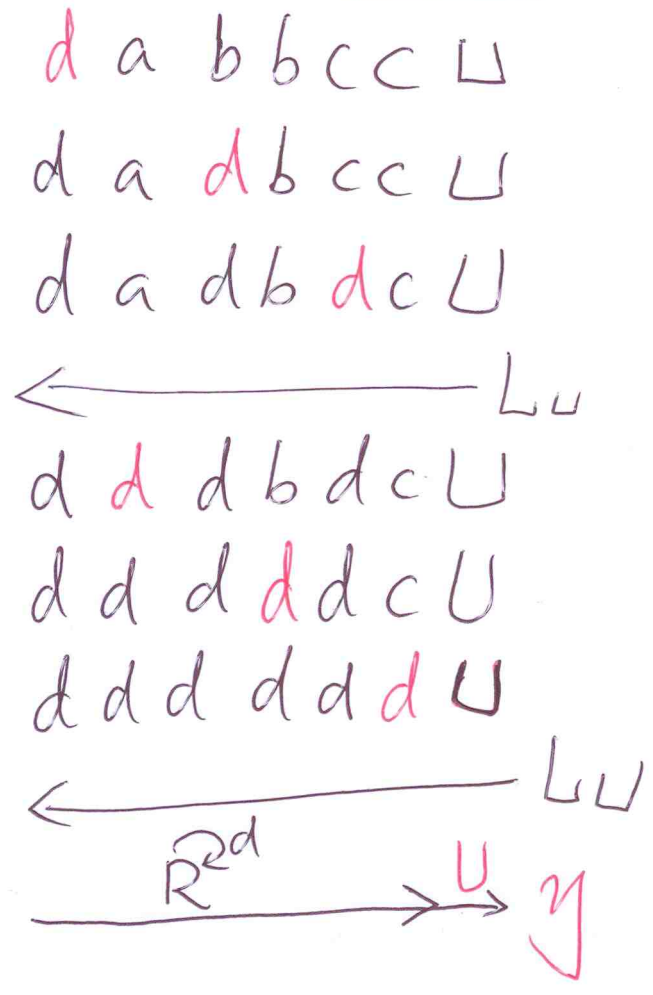 d a b b c c ⊔
d a d b c c ⊔
d a d b d c ⊔
L⊔
d d d b d c ⊔
d d d d d c ⊔
d d d d d d ⊔
L⊔
R d ⊔ y